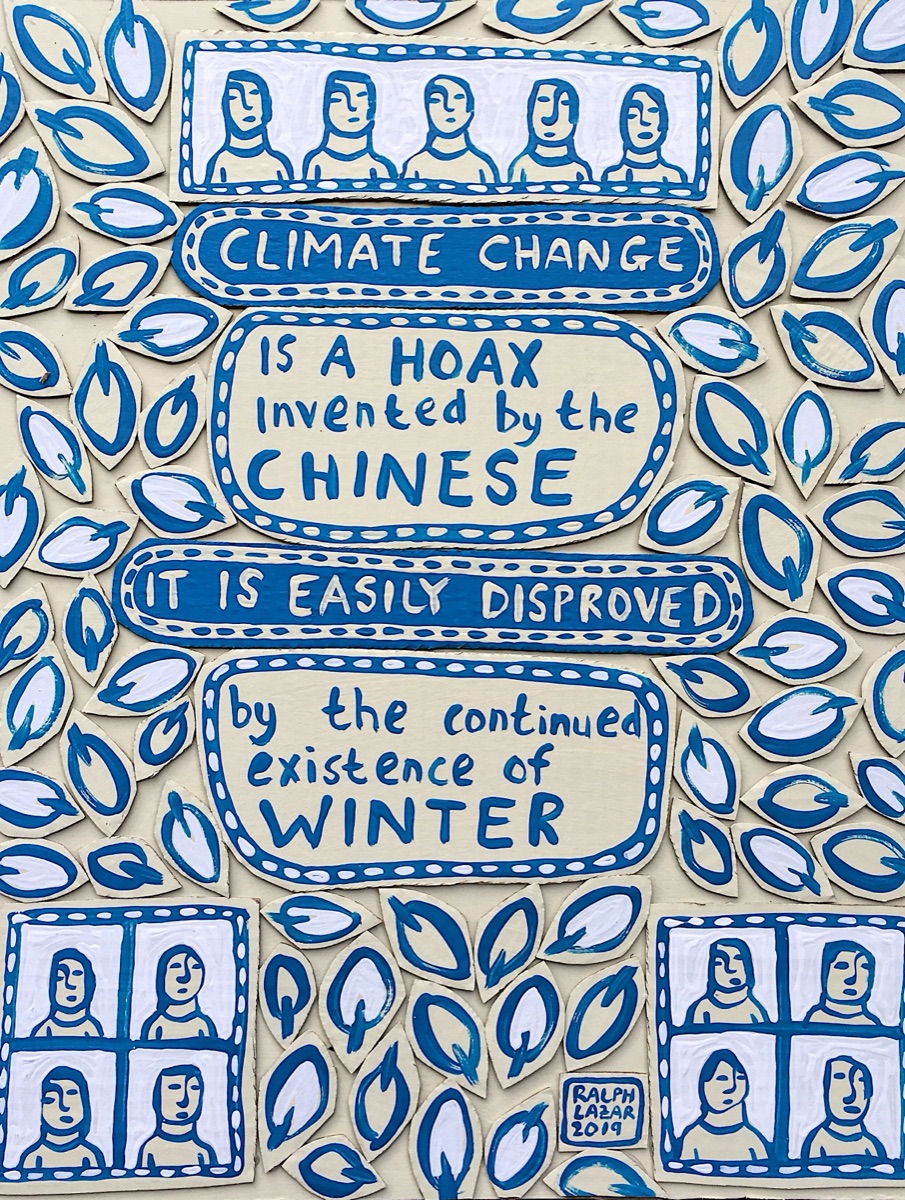 CLIMATE CHANGE
IS A HOAX
Invented by the
CHINESE
IT IS EASILY DISPROVED
by the continued
existence of
WINTER
RALPH
LAZAR
2019